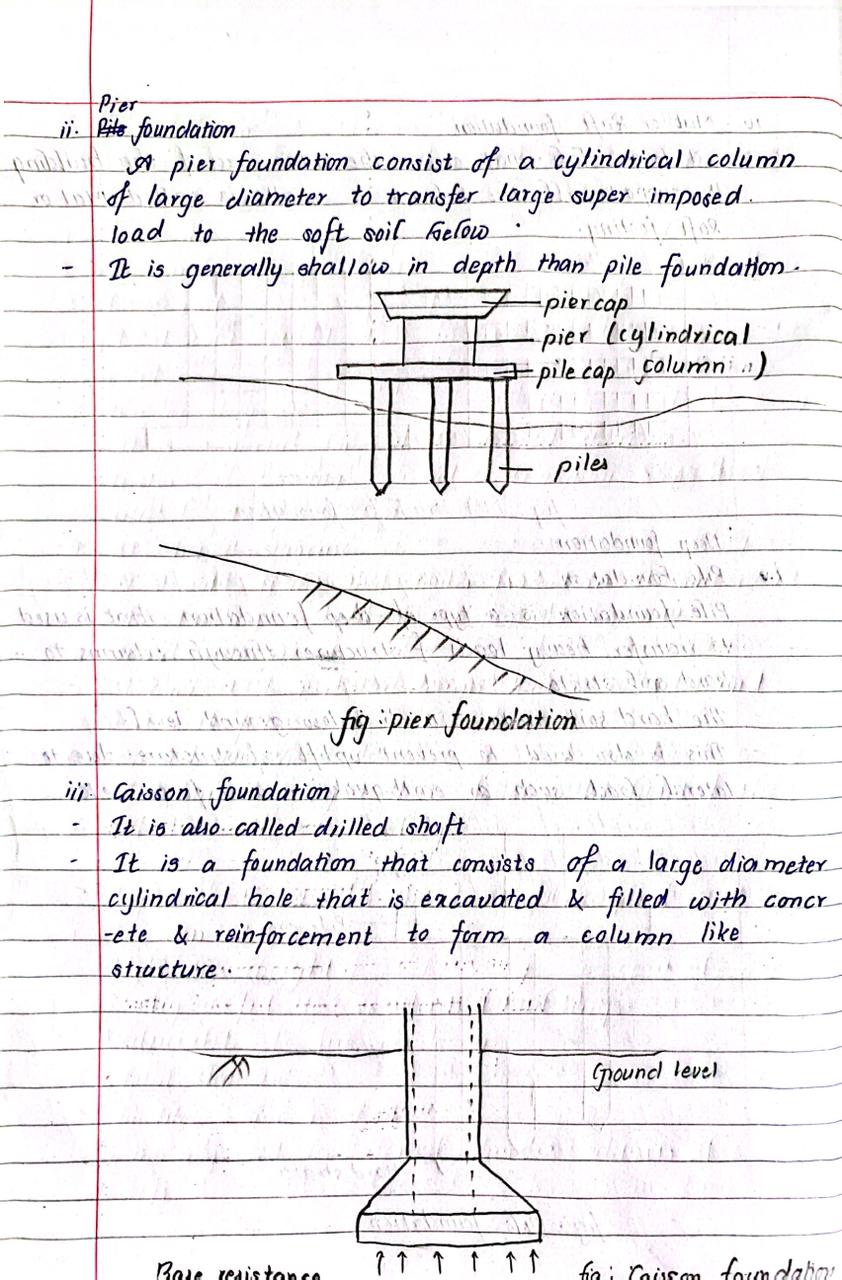 Pier
ii. Pile foundation
A pier foundation consist of a cylindrical column
of large diameter to transfer large super imposed.
load to the soft soil below.
- It is generally shallow in depth than pile foundation.
pier cap
pier (cylindrical
column)
pile cap
piles
fig: pier foundation
iii. Caisson foundation
- It is also called drilled shaft
- It is a foundation that consists of a large diameter
cylindrical hole that is excavated & filled with concr
-ete & reinforcement to form a column like
structure.
Ground level
Base resistance
fig: Caisson foundation